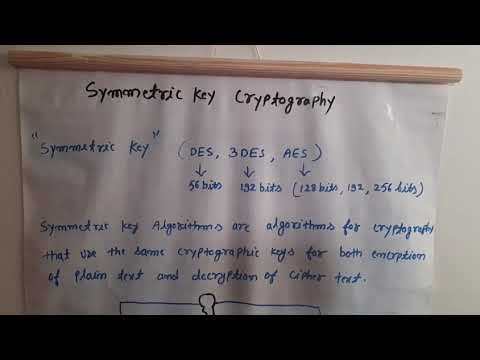 Symmetric Key Cryptography
"Symmetric Key" (DES, 3DES, AES)
56 bits 192 bits (128 bits, 192, 256 bits)
Symmetric key Algorithms are algorithms for cryptography
that use the same cryptographic keys for both encrption
of Plain text and decryption of Cipher text.